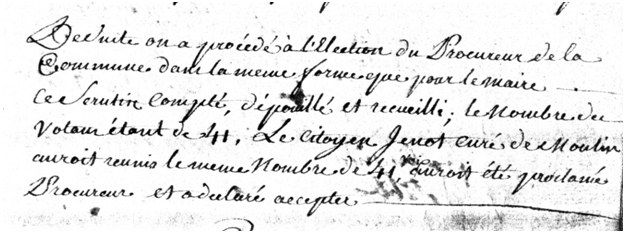 De Suite on a procédé à l'Election du Procureur de la
Commune dans la meme forme que pour le maire
Ce Scrutin Compté, dépouillé et recueilli; le Nombre de
Votans étant de 41, Le Citoyen Jenot curé de Moulin
auroit reunis le meme Nombre de 41 voix auroit été proclamé
Procureur et a declaré accepter